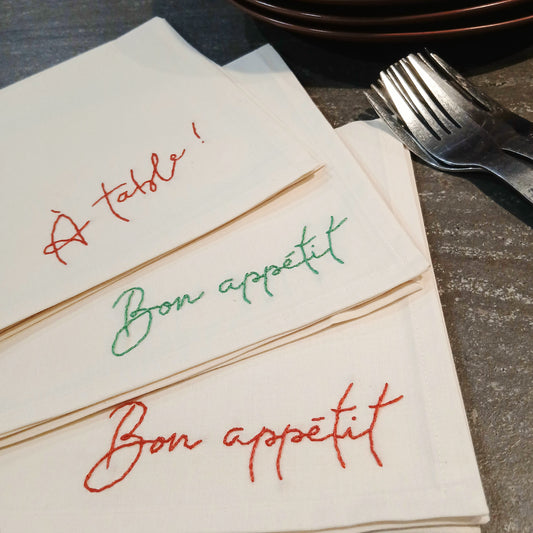 À table !
Bon appétit
Bon appétit